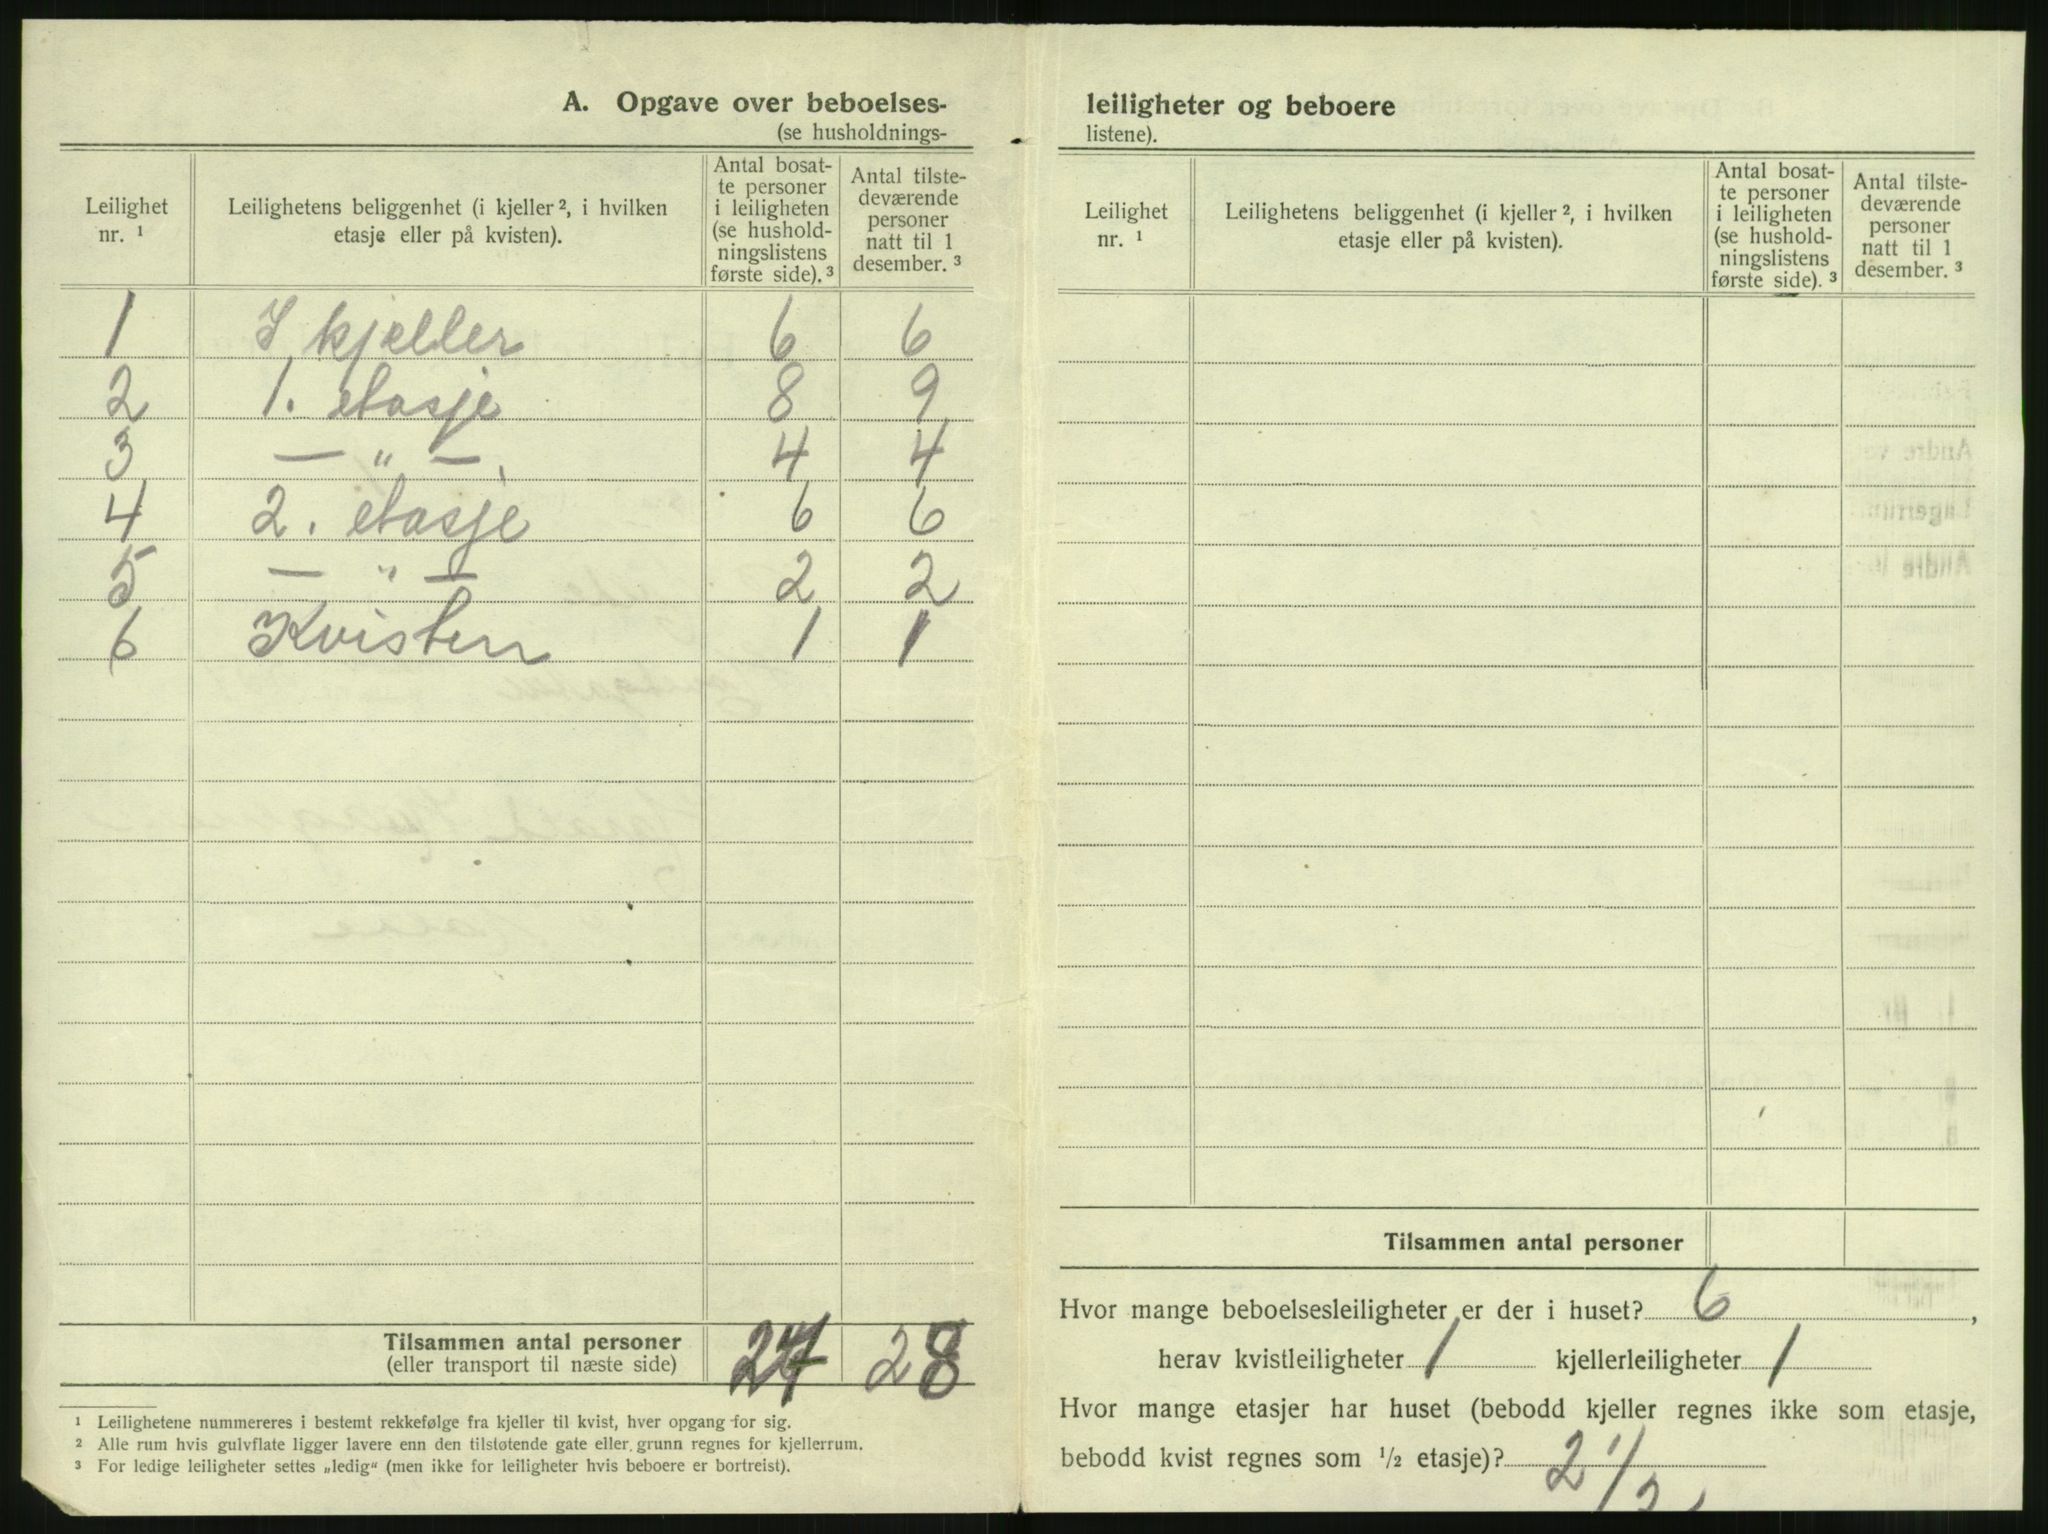 A. Opgave over beboelses-
(se husholdnings-
Leilighet nr. ¹
Leilighetens beliggenhet (i kjeller ², i hvilken
etasje eller på kvisten).
Antal bosat-
te personer
i leiligheten
(se hushold-
ningslistens
første side). ³
Antal tilste-
deværende
personer
natt til 1
desember. ³
1 I kjeller 6 6
2 1. etasje 8 9
3 — " — 4 4
4 2. etasje 6 6
5 — " — 2 2
6 Kvisten 1 1
Tilsammen antal personer 27 28
(eller transport til næste side)
¹ Leilighetene nummereres i bestemt rekkefølge fra kjeller til kvist, hver opgang for sig.
² Alle rum hvis gulvflate ligger lavere enn den tilstøtende gate eller grunn regnes for kjellerrum.
³ For ledige leiligheter settes „ledig“ (men ikke for leiligheter hvis beboere er bortreist).
leiligheter og beboere
listene).
Leilighet
nr. ¹
Leilighetens beliggenhet (i kjeller ², i hvilken
etasje eller på kvisten).
Antal bosat-
te personer
i leiligheten
(se hushold-
ningslistens
første side). ³
Antal tilste-
deværende
personer
natt til 1
desember. ³
Tilsammen antal personer
Hvor mange beboelsesleiligheter er der i huset? 6,
herav kvistleiligheter 1 kjellerleiligheter 1
Hvor mange etasjer har huset (bebodd kjeller regnes ikke som etasje,
bebodd kvist regnes som ½ etasje)? 2 1/2